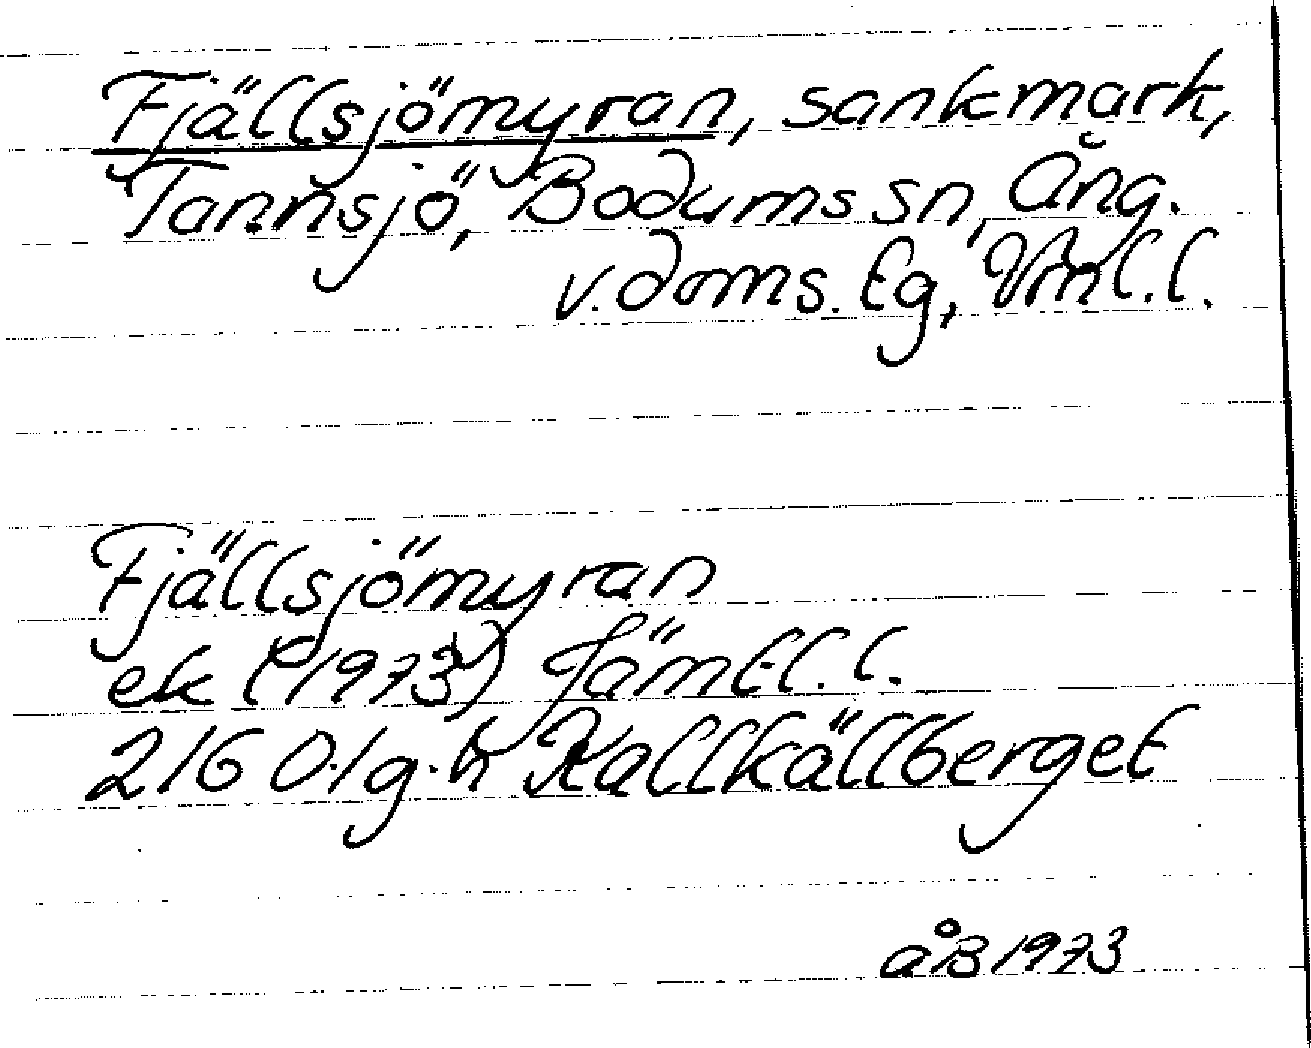 Fjällsjömyran, sankmark,
Tannsjö, Bodums sn, Ång.
v. doms. tg, Vnl.l.
Fjällsjömyran
ek (1973) Jämtl.l.
216 0.1g.h Kallkällberget
åB 1973